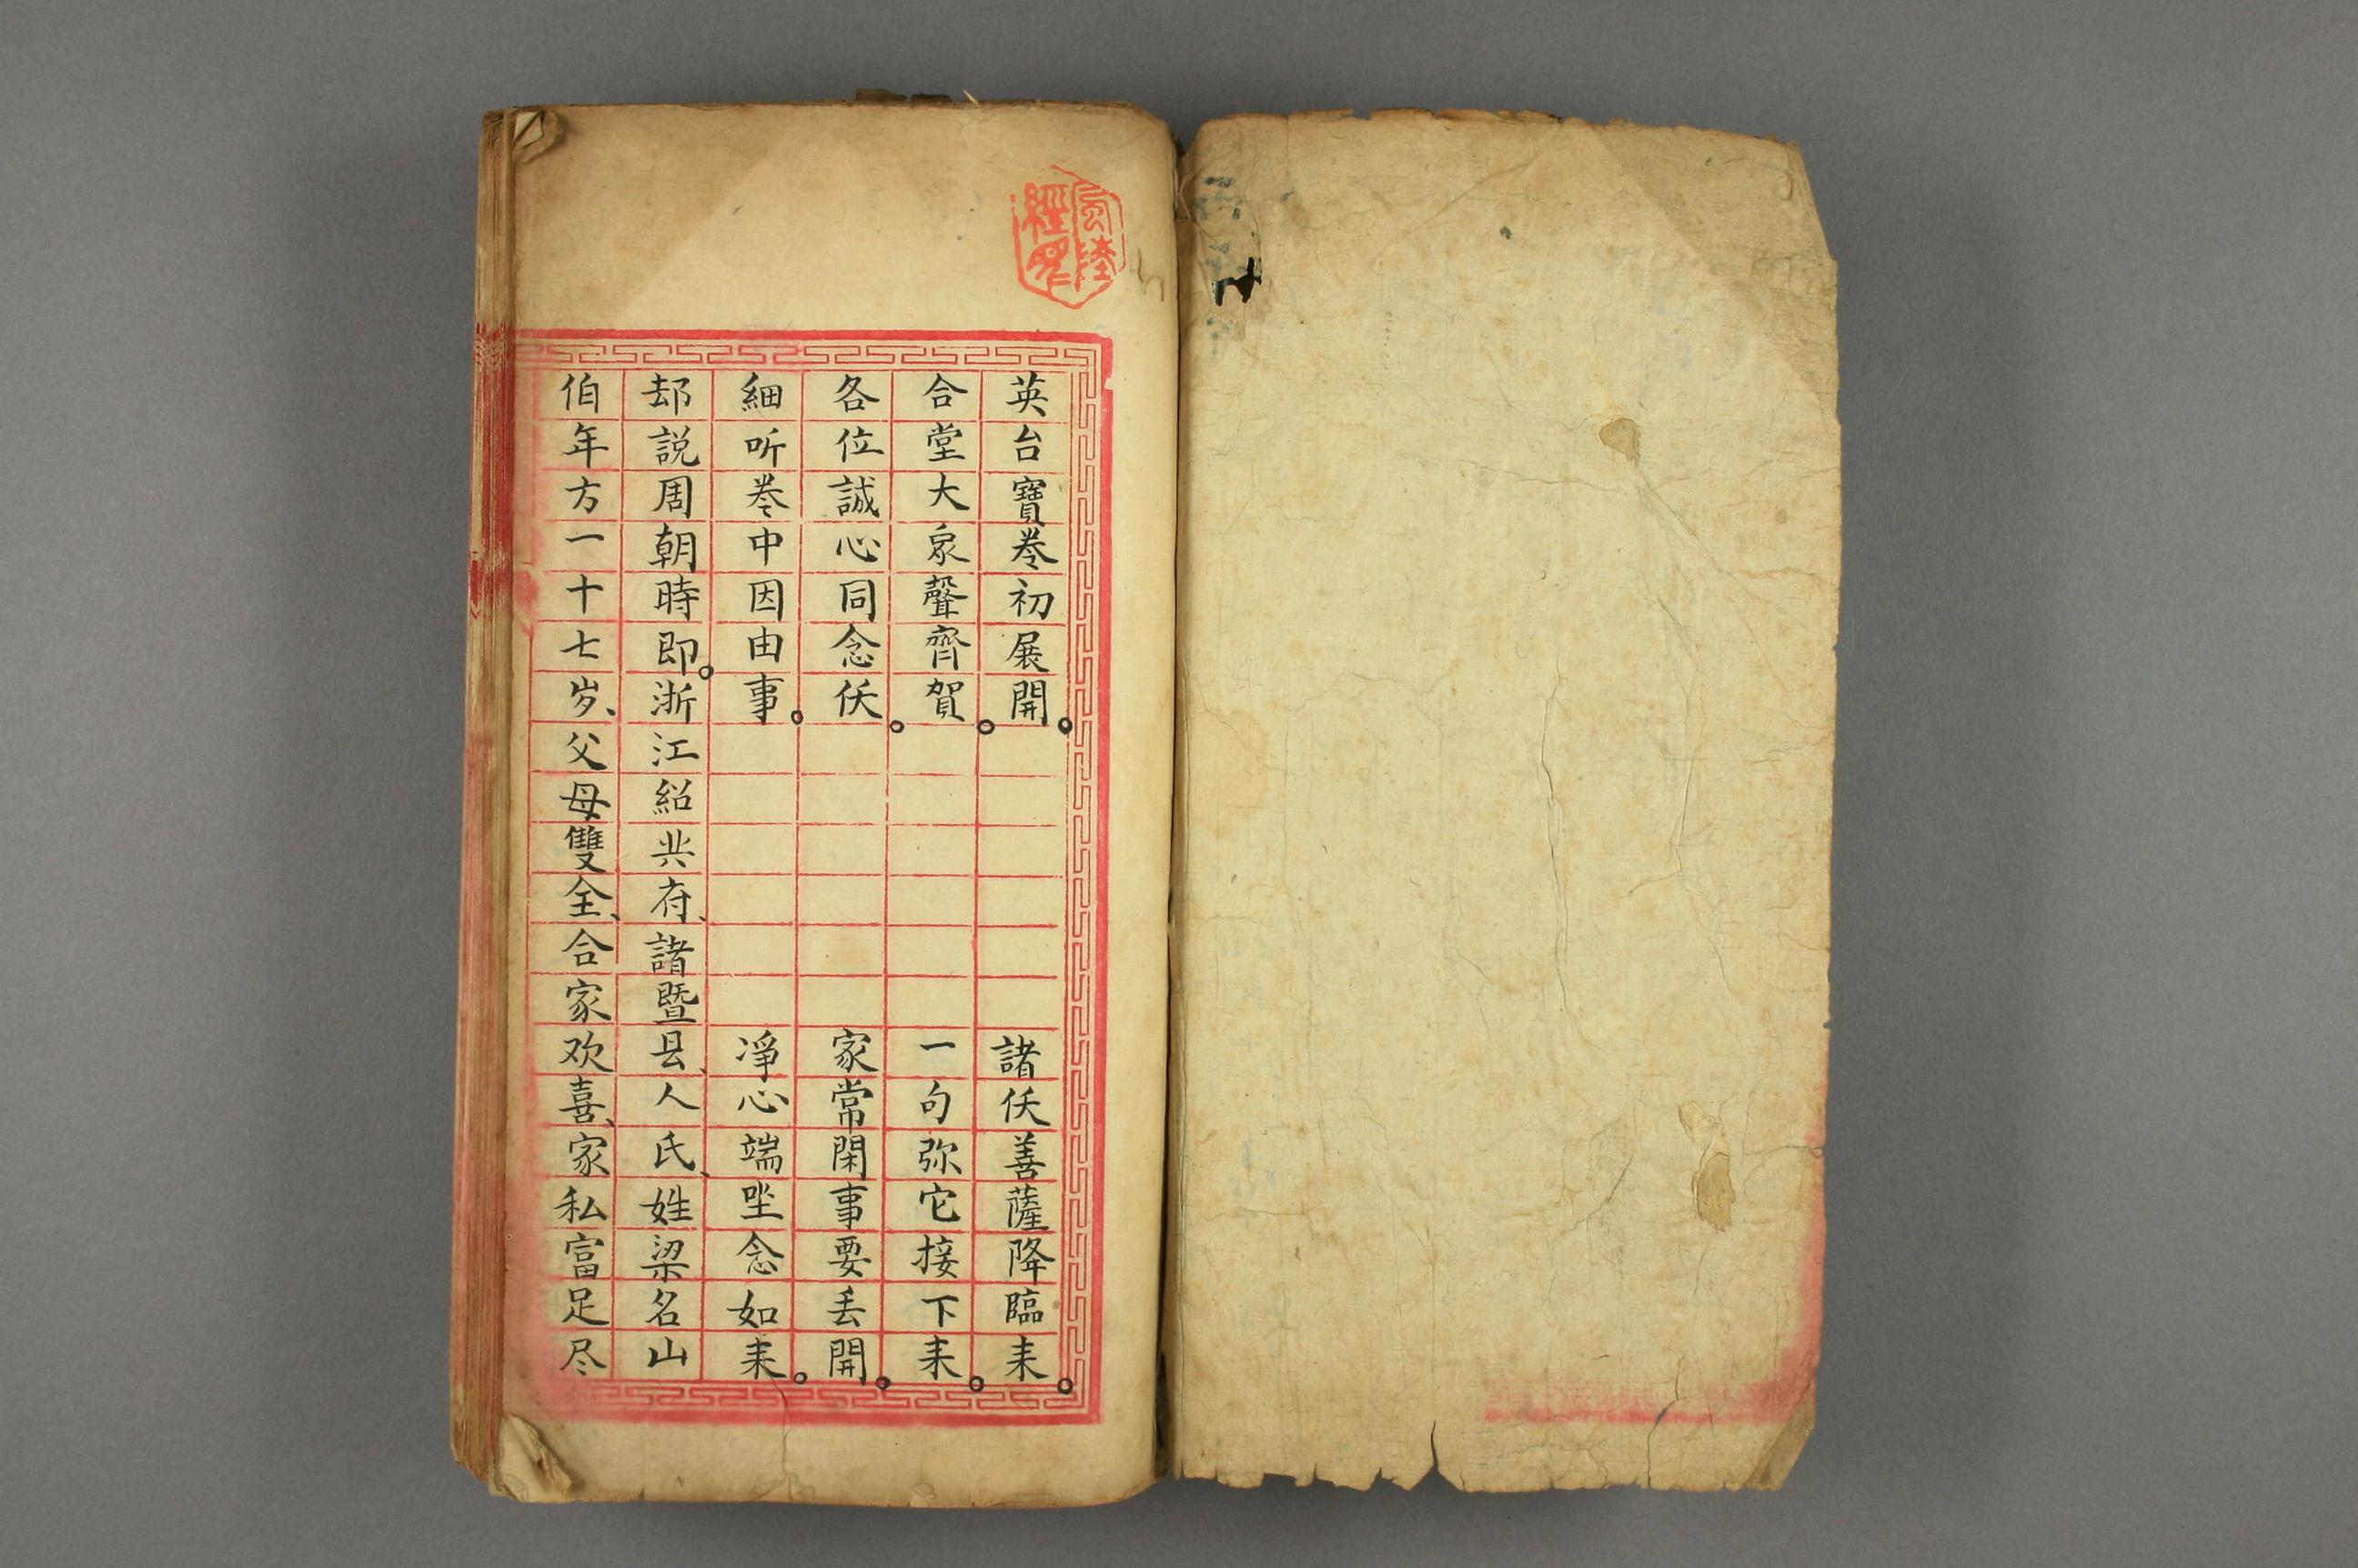 英台寶卷初展開。諸佛善薩降臨来。
合堂大衆聲齊賀。一句弥它接下来。
各位誠心同念佛。家常閑事要丢開。
細听卷中因由事。凈心端坐念如来。
却説周朝時即。浙江紹兴府、諸暨县、人氏、姓梁名山
伯年方一十七岁、父母雙全、合家欢喜、家私富足尽